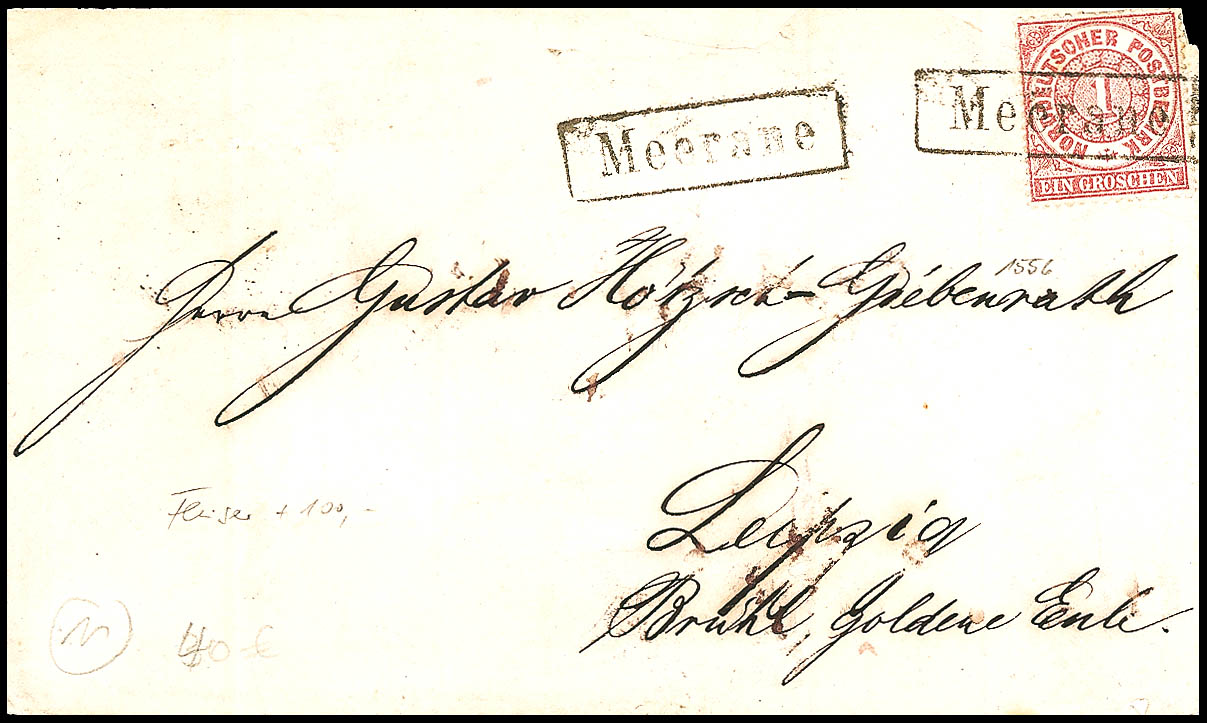 Meerane
Meerane
NORDDEUTSCHER POSTBEZIRK
1
EIN GROSCHEN
1556
Herrn Gustav Hötzsch-Griebenrath
Leipzig
Brühl, Goldene Eule.
+ 100,-
40